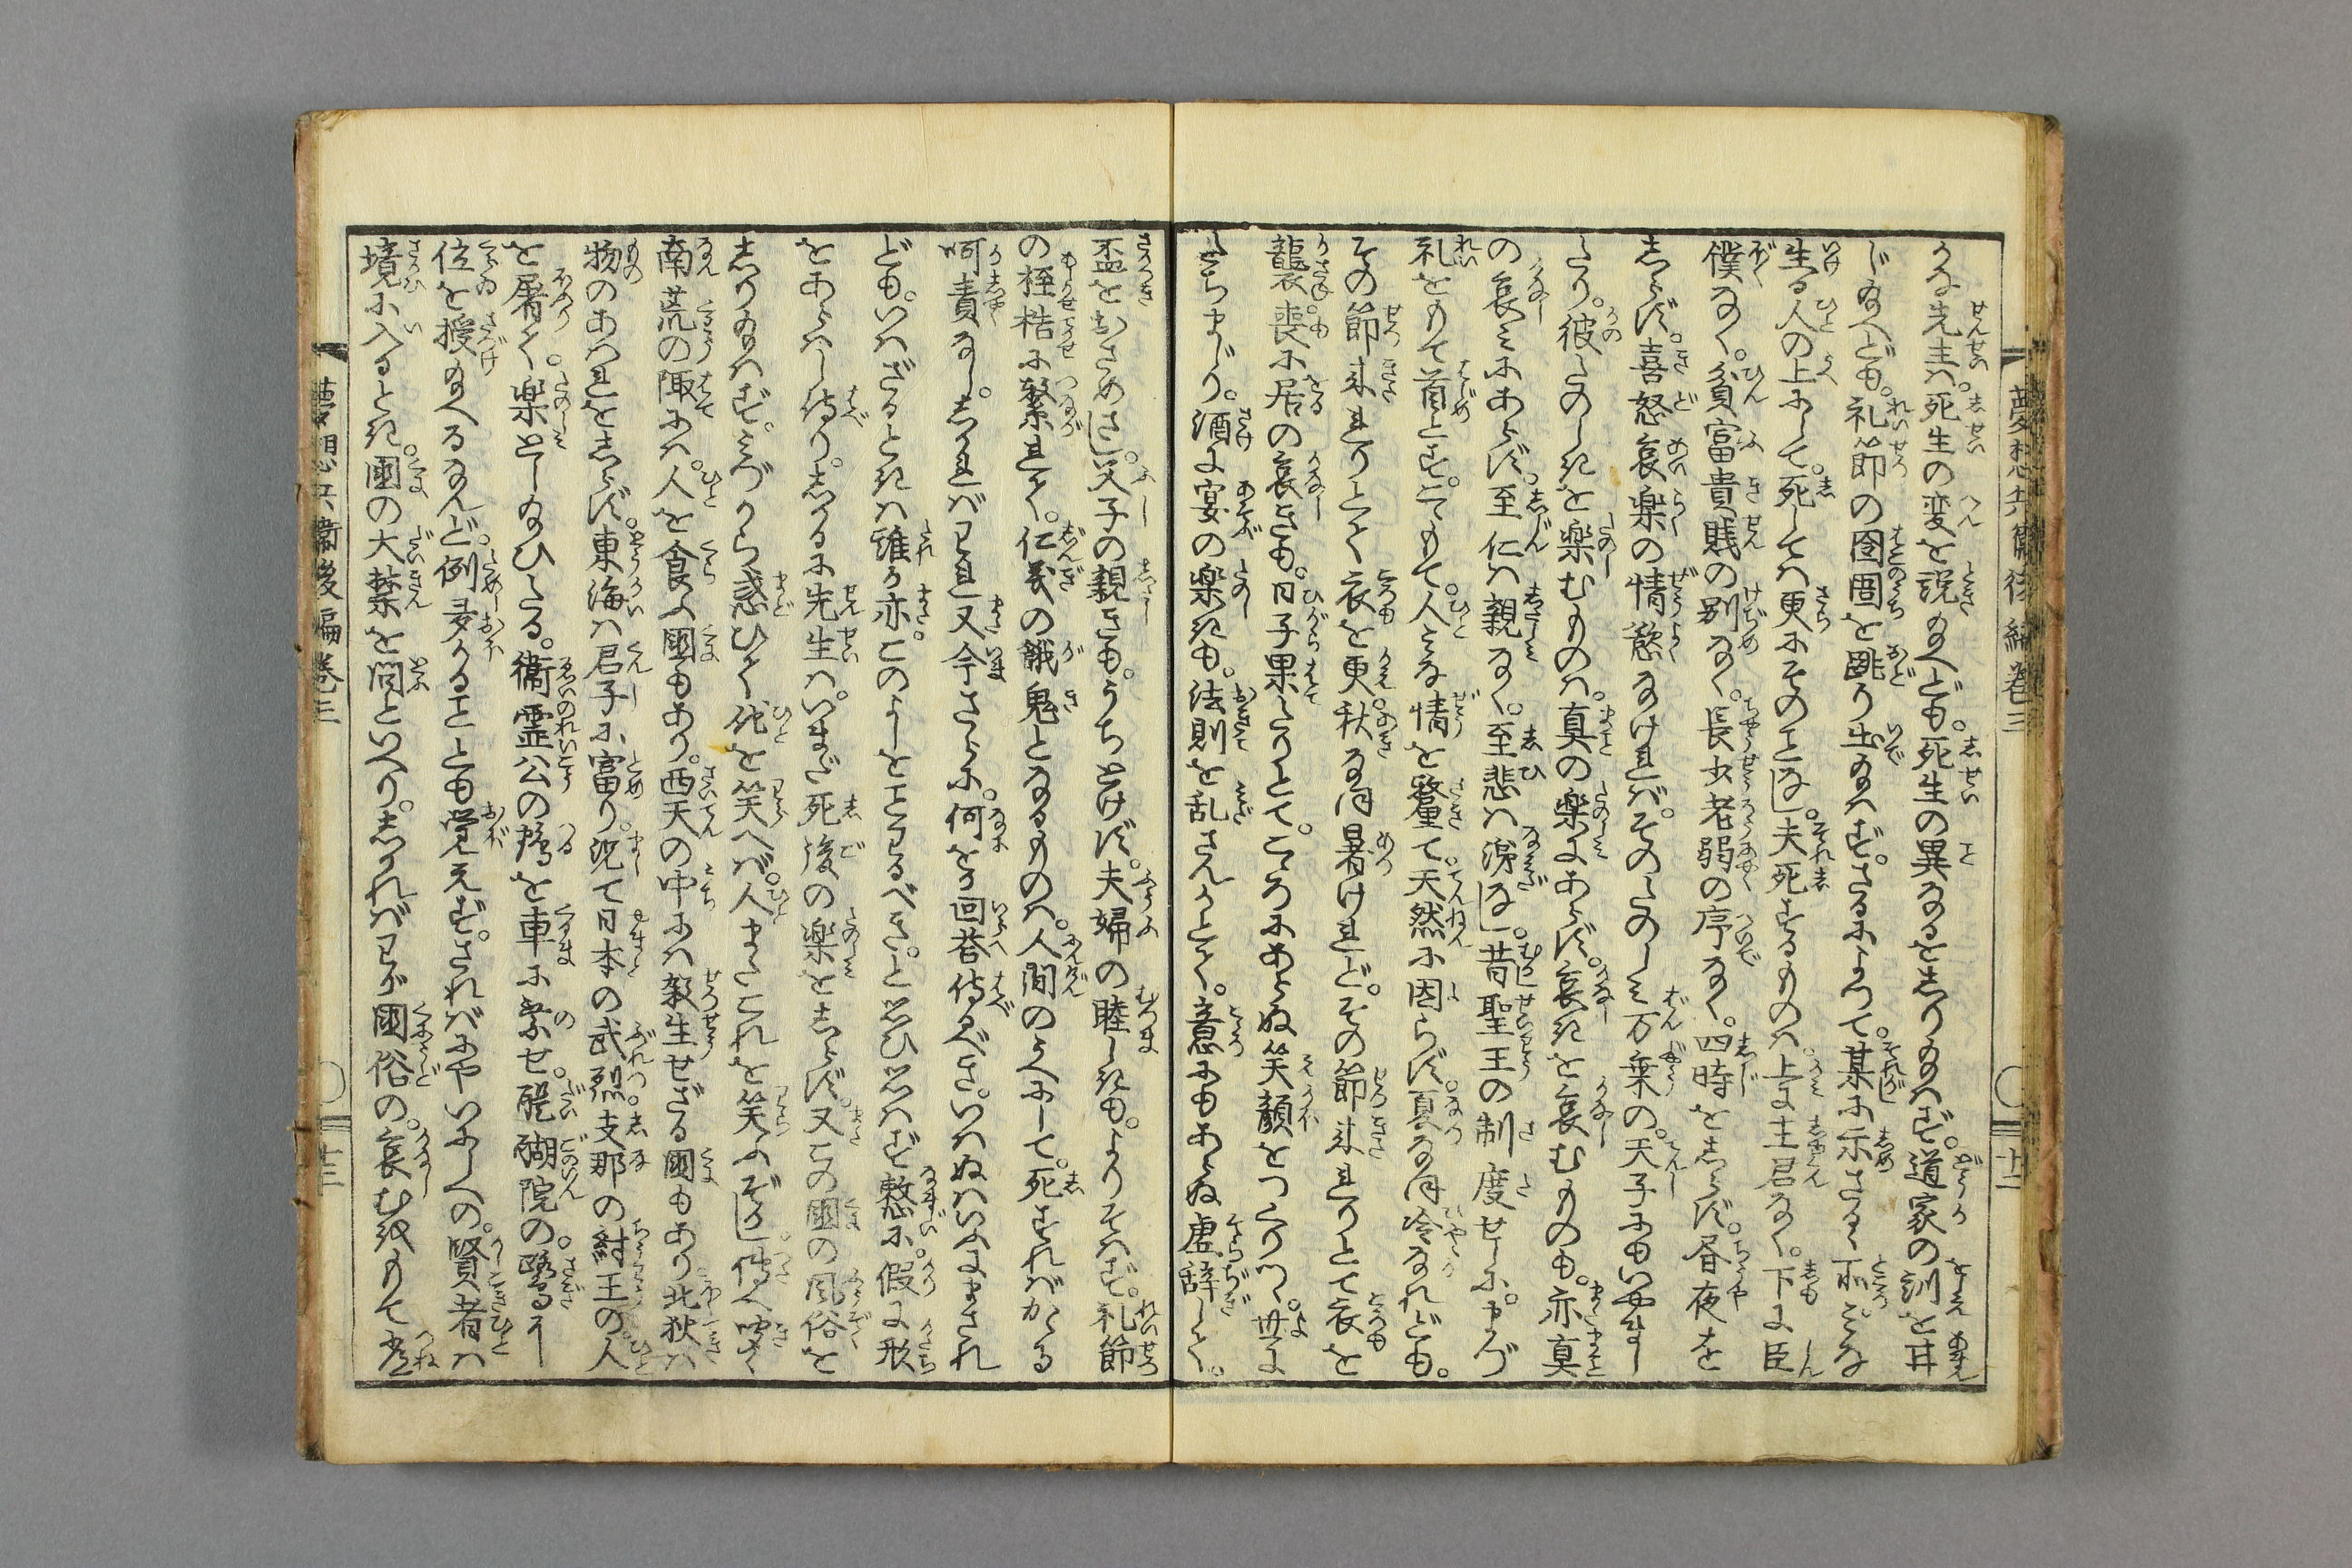 夢想兵衛後編巻三 十二
うな先生ハ。死生の変を説給へども。死生の異なるをしり給はず。道家の訓を甘
じ給へども。礼節の囹圄を跳り出給はず。さるによつて。某に示さるゝ所ぞな
生る人の上にして。死しては更にそのことなし。夫死するものハ。上に主君なく。下に臣
僕なく。貧富貴賤の別なく。長少老弱の序なく。四時をしらず。昼夜を
しらず。喜怒哀楽の情慾なければ。そのたのしみ万乗の。天子にもいやまし
たり。彼たのしきを楽むものハ。真の楽にあらず。哀きを哀むものも。亦真
の哀みにあらず。至仁ハ親なく。至悲ハ涙なし。昔聖王の制度せしに。まづ
礼をもて首とす。こゝをもて。人みな情を
て。天然に因らず。夏なほ冷なれども。
その節来れりとて衣を更。秋なほ暑けれど。その節来れりとて衣を
襲。喪に居の哀きも。日子果たりとて。こゝろにあらぬ笑顔をつくりつ。世に
たちまじり。酒に宴の楽きも。法則を乱さんかとて。意にもあらぬ虚辞して。
盃をおさめさし。父子の親きも。うちとけず。夫婦の睦しきも。よりそはず。礼節
の桎梏に繋れて。仁義の餓鬼となるものハ。人間のうへにして。死すればかゝる
呵責なし。しかれバわれ又今さらに。何をか回荅侍るべき。いはぬはいふにまされ
ども。いはざるときハ誰か亦。このよしをことわるべき。と思ひ思はず憖に。假に形
をあらハし侍り。しかるに先生ハ。いまだ死後の楽をしらず。又この国の風俗を
しり給はず。みづから惑ひて他を笑へバ。人またこれを笑ふぞかし。傳へ聞く
南荒の陬にハ。人を食ふ国もあり。西天の中にハ殺生せざる国もあり。北狄ハ
物のあはれをしらず。東海ハ君子に富り。况て日本の武烈。支那の紂王の人
を屠て。楽としたまひたる。衞霊公の鶴を車に乗せ。醍醐院の鷺に
位を授給へるなんど。例多かることも覚えず。されバにやいにしへの。賢者ハ
境に入るとき。国の大禁を問といへり。しかれバわが国俗の。哀むをもて常
夢想兵衞後編巻三 十三